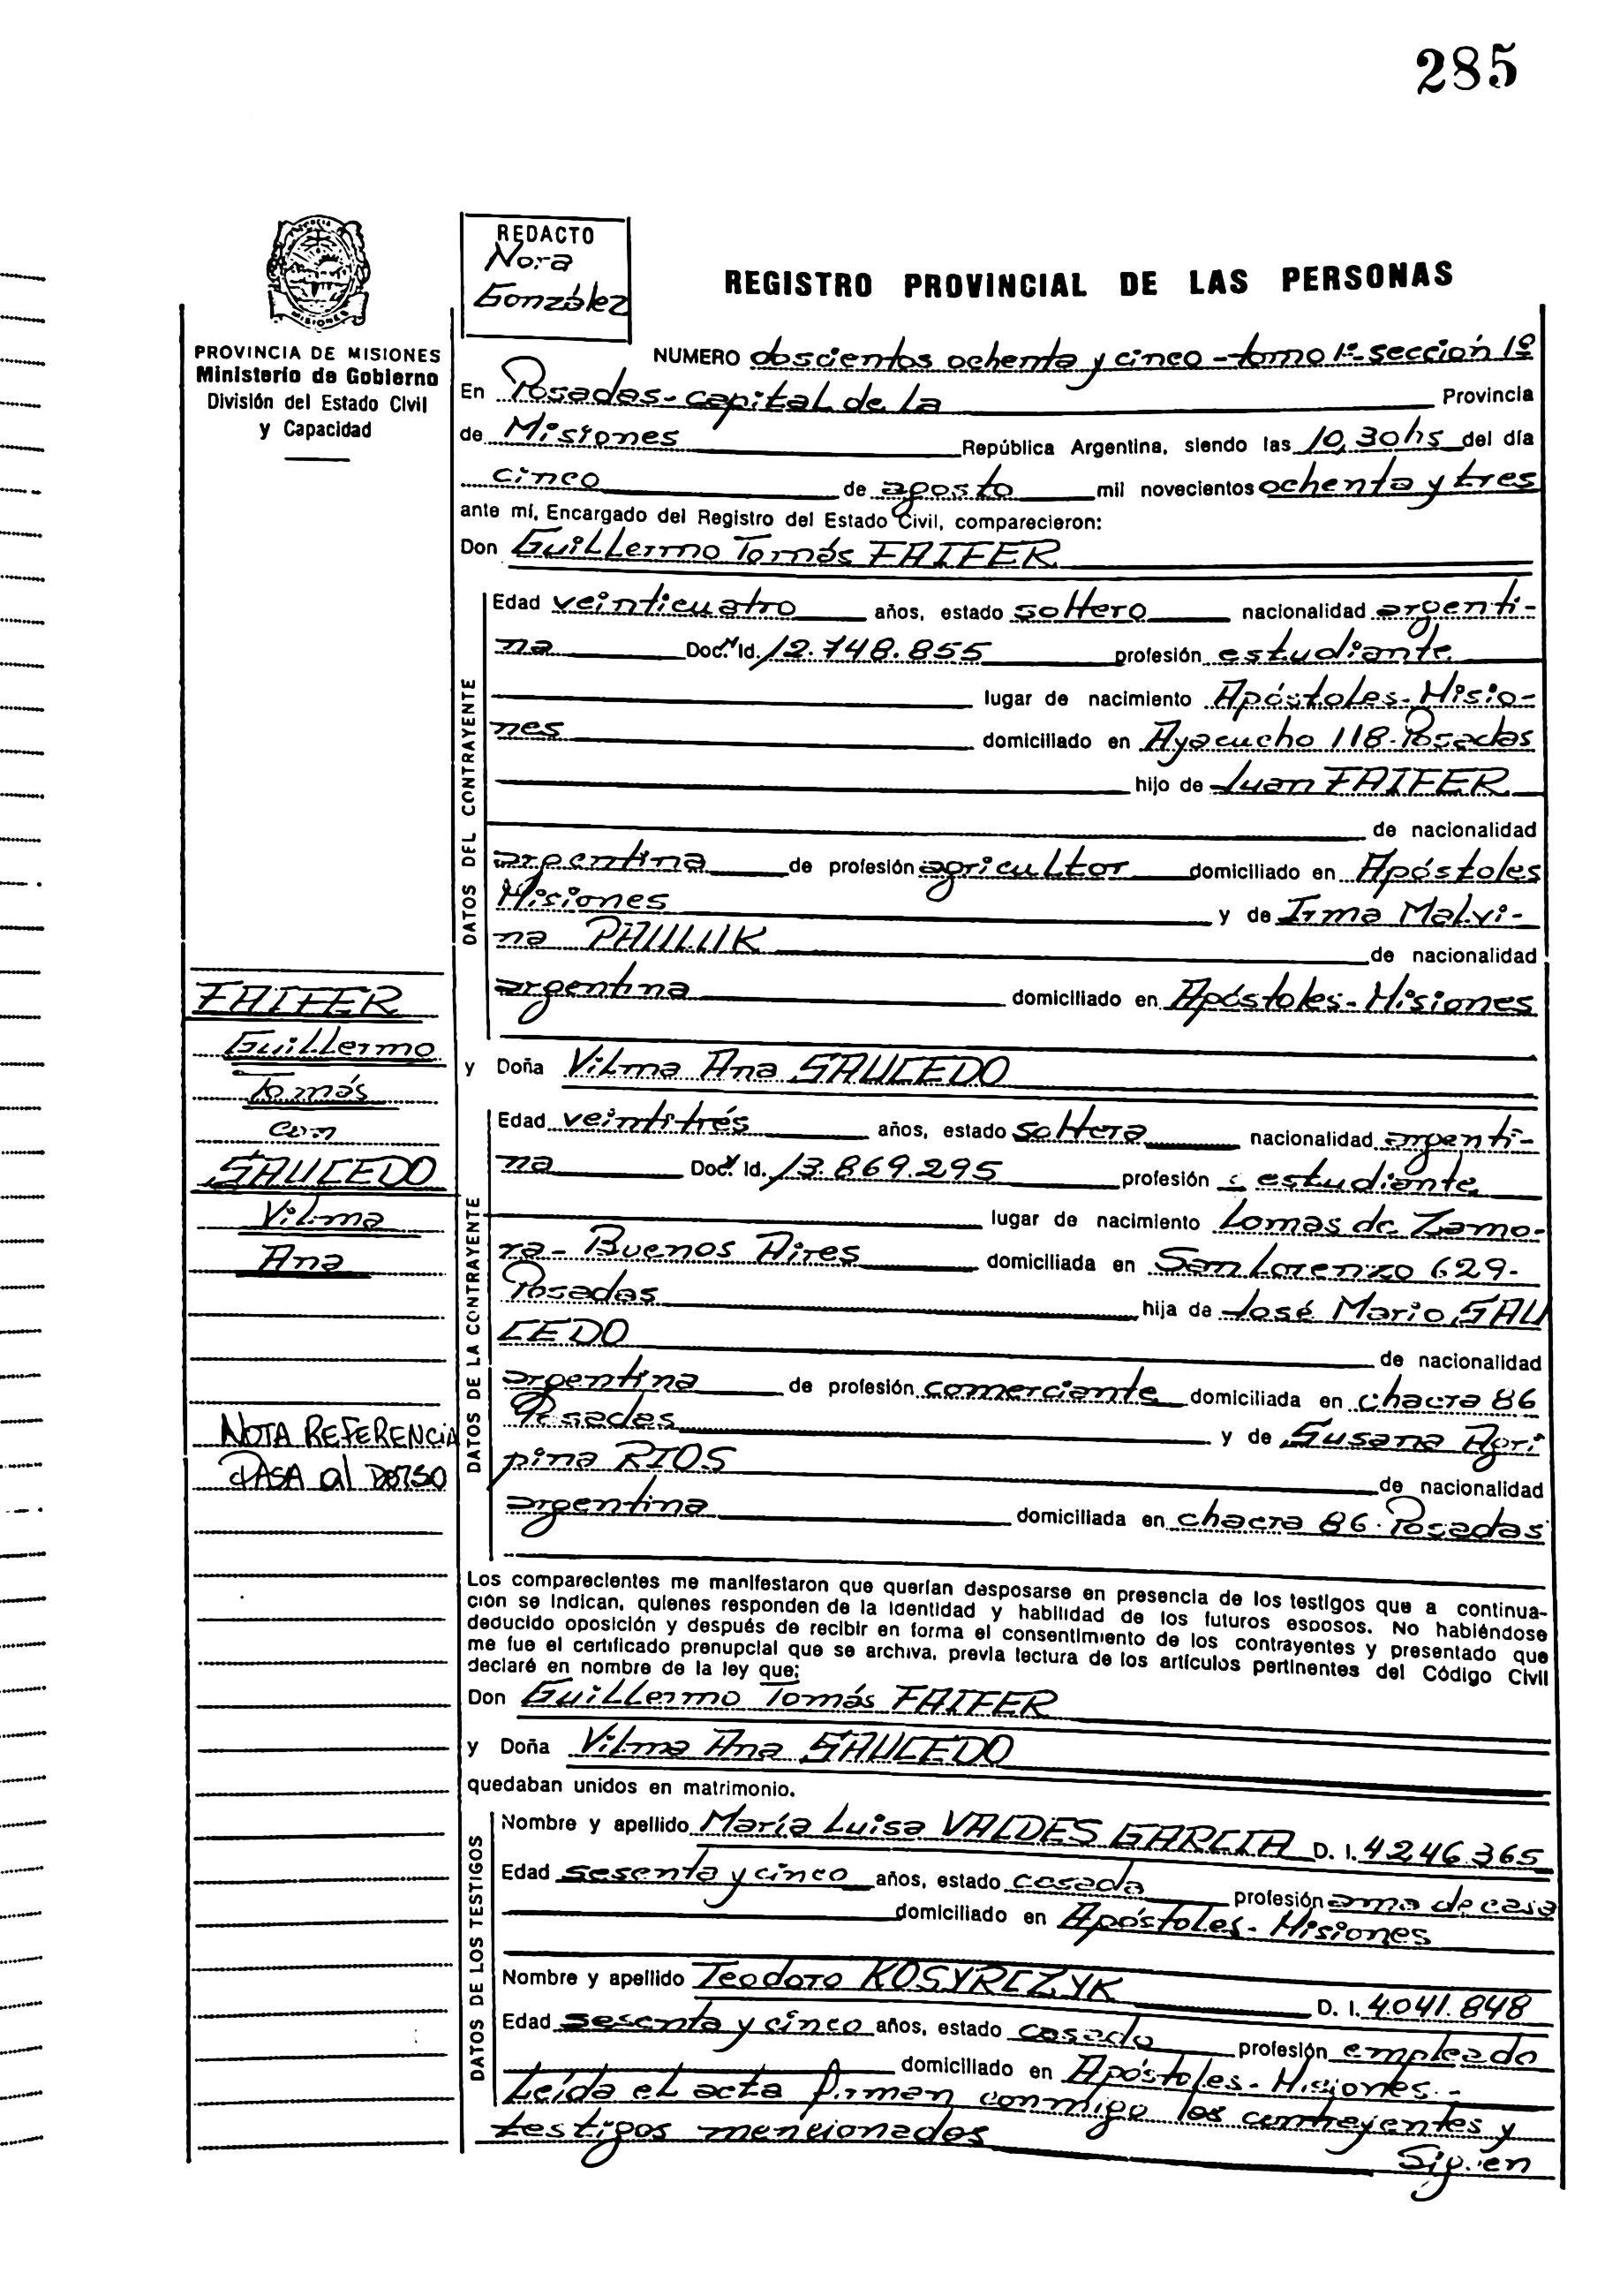 285
REDACTO
Nora
González
REGISTRO PROVINCIAL DE LAS PERSONAS
PROVINCIA DE MISIONES
Ministerio de Gobierno
División del Estado Civil
y Capacidad
NUMERO doscientos ochenta y cinco - tomo 1º - sección 1º
En Posadas - capital de la Provincia
de Misiones República Argentina, siendo las 10,30 hs del día
cinco de agosto mil novecientos ochenta y tres
ante mí, Encargado del Registro del Estado Civil, comparecieron:
Don Guillermo Tomás FAIFER
DATOS DEL CONTRAYENTE
Edad veinticuatro años, estado soltero nacionalidad argenti-
na Doc. Id. 12.748.855 profesión estudiante
lugar de nacimiento Apóstoles - Misio-
nes domiciliado en Ayacucho 118 - Posadas
hijo de Juan FAIFER
de nacionalidad
argentina de profesión agricultor domiciliado en Apóstoles
Misiones y de Irma Malvi-
na de nacionalidad
argentina domiciliado en Apóstoles - Misiones
FAIFER
Guillermo
Tomás
con
SAUCEDO
Vilma
Ana
NOTA REFERENCIA
PASA al DORSO
y Doña Vilma Ana SAUCEDO
DATOS DE LA CONTRAYENTE
Edad veintitrés años, estado soltera nacionalidad argenti-
na Doc. Id. 13.869.295 profesión : estudiante
lugar de nacimiento Lomas de Zamo-
ra - Buenos Aires domiciliada en San Lorenzo 629 -
Posadas hija de José Mario SAU
CEDO de nacionalidad
argentina de profesión comerciante domiciliada en chacra 86
Posadas y de Susana Agri
pina RIOS de nacionalidad
argentina domiciliada en chacra 86 - Posadas
Los comparecientes me manifestaron que querían desposarse en presencia de los testigos que a continua-
ción se indican, quienes responden de la identidad y habilidad de los futuros esposos. No habiéndose
deducido oposición y después de recibir en forma el consentimiento de los contrayentes y presentado que
me fue el certificado prenupcial que se archiva, previa lectura de los artículos pertinentes del Código Civil
declaré en nombre de la ley que:
Don Guillermo Tomás FAIFER
y Doña Vilma Ana SAUCEDO
quedaban unidos en matrimonio.
DATOS DE LOS TESTIGOS
Nombre y apellido María Luisa VALDES GARCIA D. I. 4.246.365
Edad sesenta y cinco años, estado casada profesión ama de casa
domiciliado en Apóstoles - Misiones
Nombre y apellido Teodoro KOSYRCZYK D. I. 4.041.848
Edad sesenta y cinco años, estado casado profesión empleado
domiciliado en Apóstoles - Misiones. -
Leída el acta firman conmigo los contrayentes y
testigos mencionados
Siguen